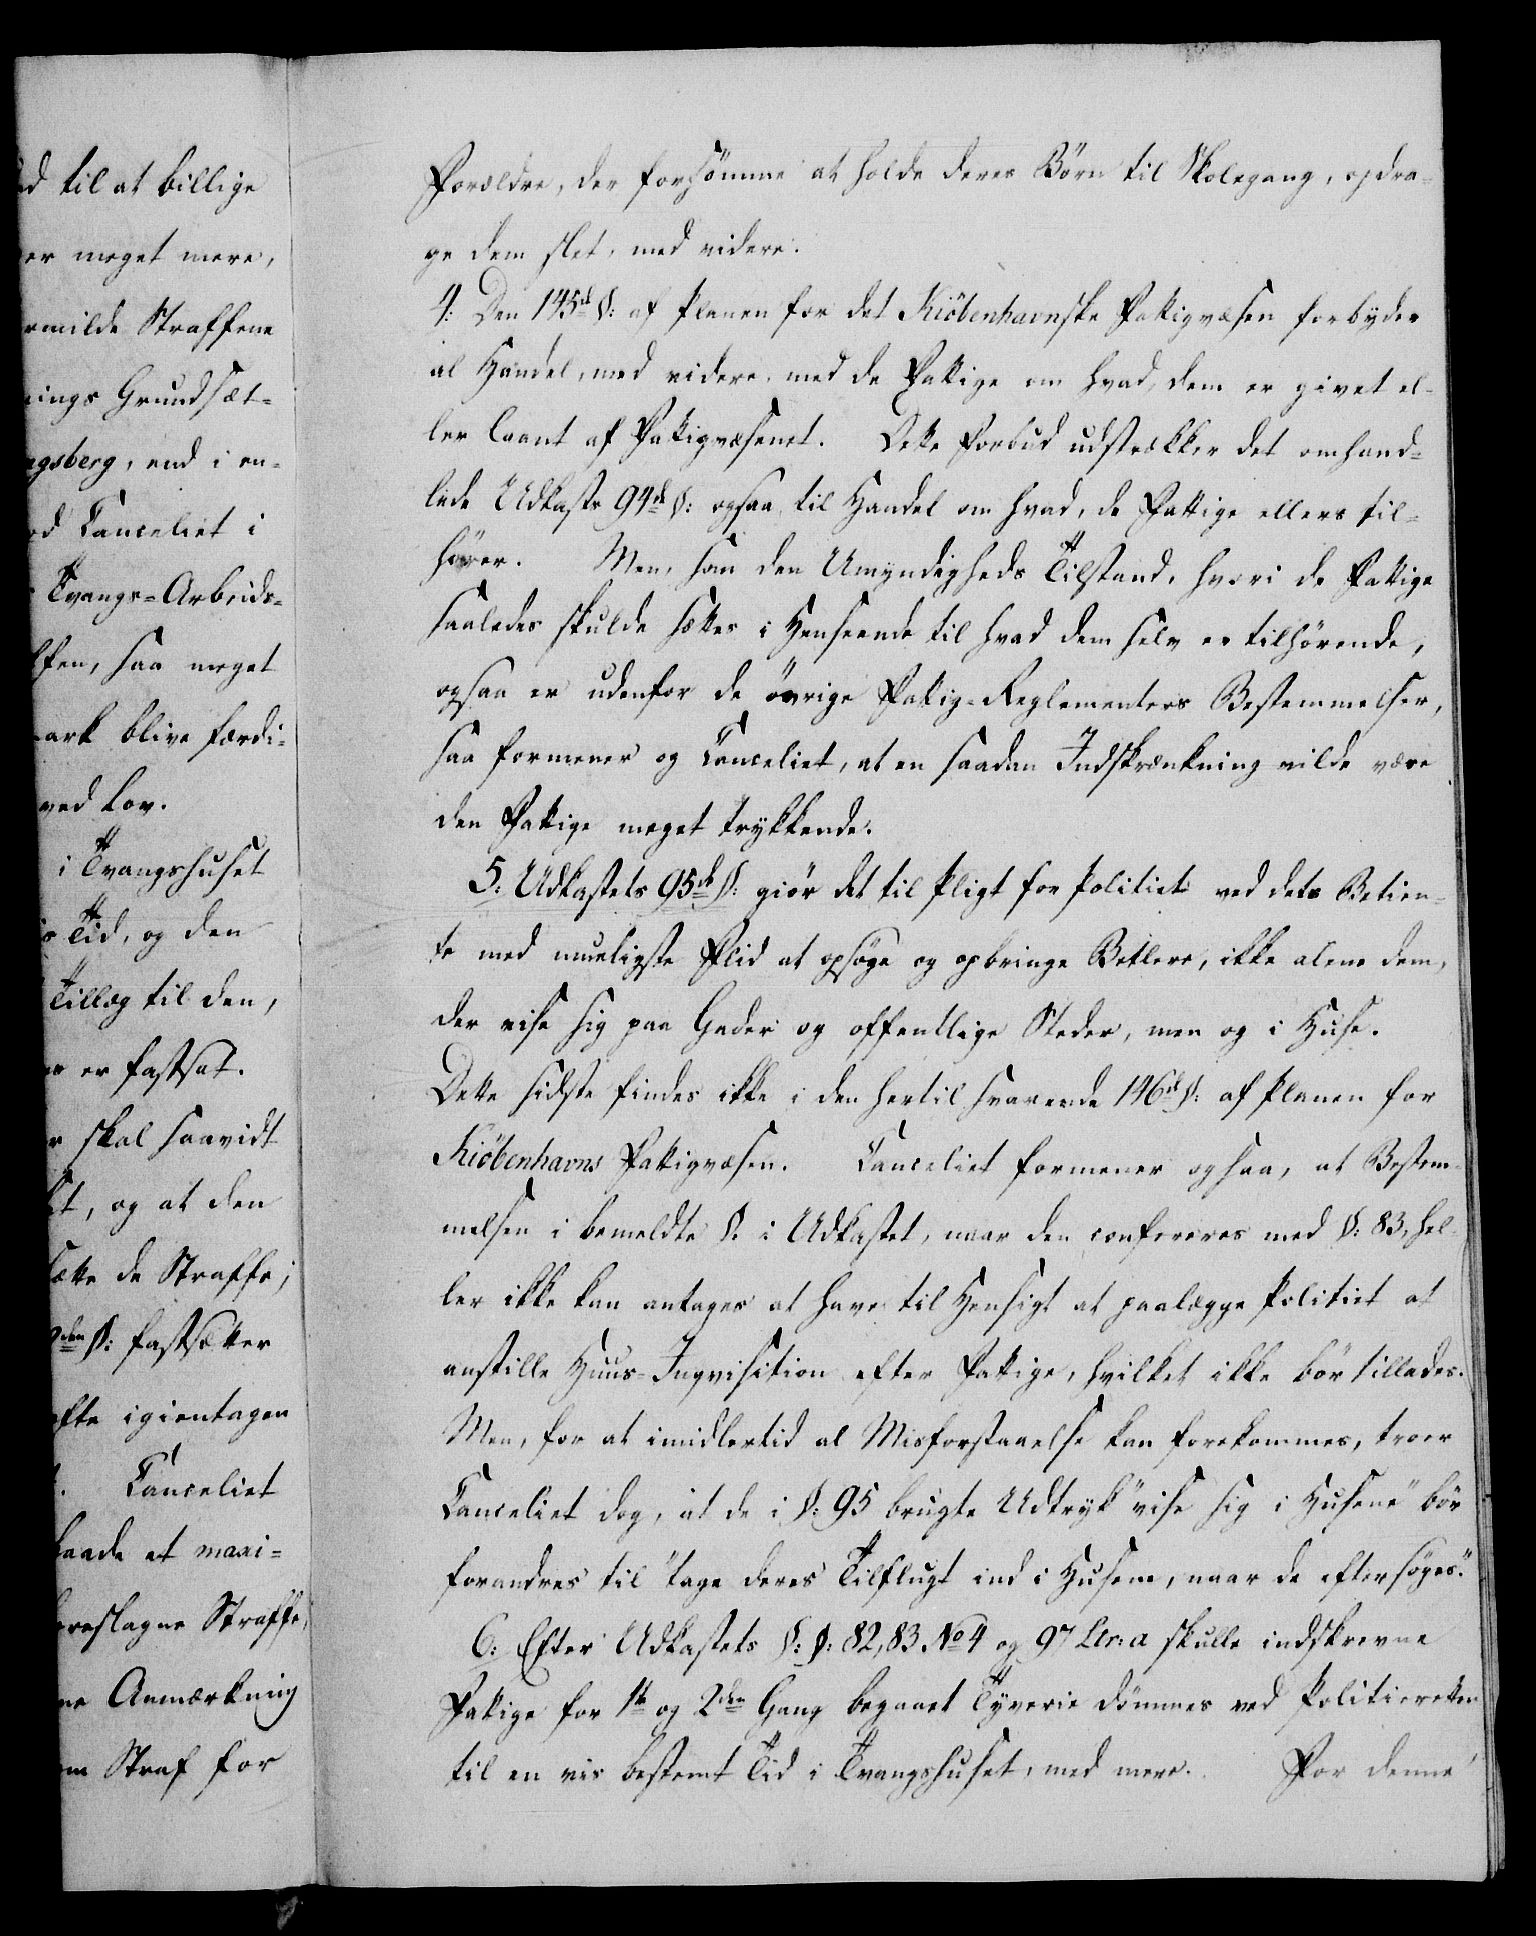 d til at billige
er meget mere,
rmilde Straffene
nings Grundsæt-
gsberg, end i en-
od Canceliet i
Tvangs-Arbeids-
ffen, saa meget
ark blive færdi-
ved Lov.
i Tvangshuset
s Tid, og den
Tillæg til den,
er fastsat.
r skal saavidt
t, og at den
sætte de Straffe;
2den §: fastsætter
ofte igientagen
Canceliet
baade et maxi-
oreslagne Straffe,
ne Anmærkning
om Straf for
Forældre, der forsømme at holde deres Børn til Skolegang, opdra-
ge dem slet, med videre.
4: Den 145de §: af Planen for det Kiöbenhavnske Fattigvæsen forbyder
al Handel, med videre, med de Fattige om hvad, dem er givet el-
ler laant af Fattigvæsenet. Dette Forbud udstrækker det omhand-
lede Udkasts 94de §: ogsaa til Handel om hvad, de Fattige ellers til-
hører. Men, som den Umyndigheds Tilstand, hvori de Fattige
saaledes skulde sættes i Henseende til hvad dem selv er tilhørende,
ogsaa er udenfor de övrige Fattig-Reglementers Bestemmelser,
saa formener og Canceliet, at en saadan Indskrænkning vilde være
den Fattige meget trykkende.
5: Udkastets 95de §: giör det til Pligt for Politiet ved dets Betien-
te med mueligste Flid at opsøge og opbringe Betlere, ikke alene dem,
der vise sig paa Gader og offentlige Steder, men og i Huse.
Dette sidste findes ikke i den hertil svarende 146de §: af Planen for
Kiöbenhavns Fattigvæsen. Canceliet formener ogsaa, at Bestem-
melsen i bemeldte §. i Udkastet, naar den confereres med §: 83, hel-
ler ikke kan antages at have til Hensigt at paalægge Politiet at
anstille Huus-Inqvisition efter Fattige, hvilket ikke bör tillades.
Men, for at imidlertid al Misforstaaelse kan forekommes, troer
Canceliet dog, at de i §: 95 brugte Udtryk "vise sig i Husene" bör
forandres til "tage deres Tilflugt ind i Husene, naar de eftersøges."
6: Efter Udkastets §: §: 82, 83 No 4 og 97 Litr: a skulle indskrevne
Fattige for 1ste og 2den Gang begaaet Tyverie dömmes ved Politieretten
til en vis bestemt Tid i Tvangshuset, med mere. For denne